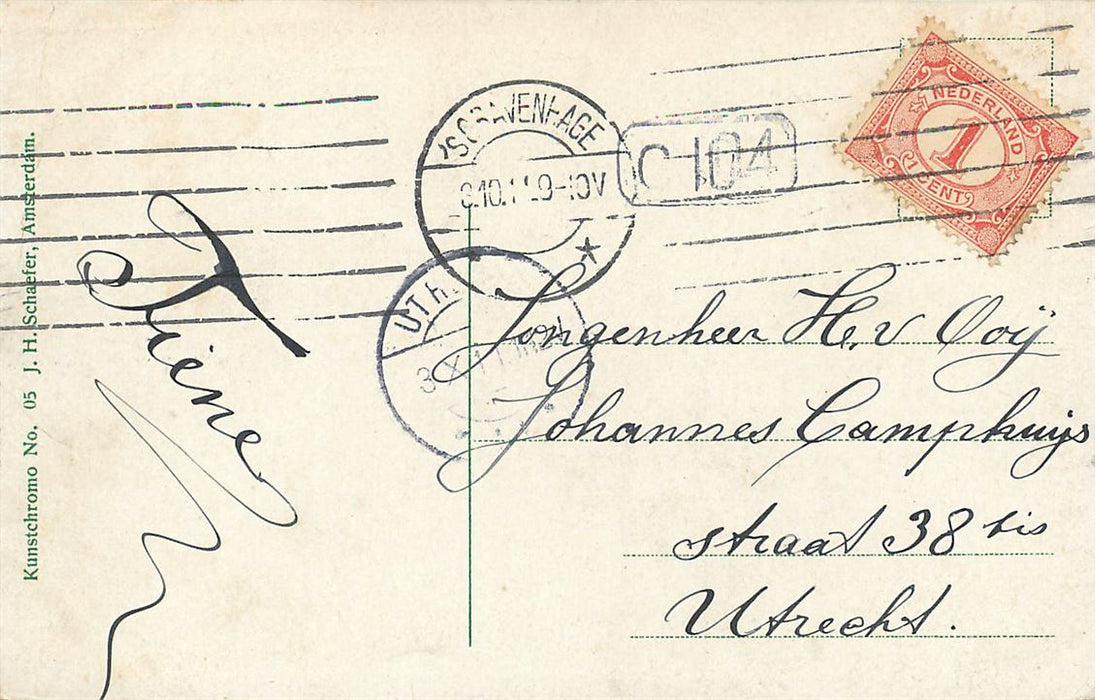 Kunstchromo No. 05 J. H. Schaefer, Amsterdam.
Tiene
'SGRAVENHAGE
C 104
NEDERLAND
1
1 CENT
Jongenheer H. v Ooij
Johannes Camphuijs
straat 38 bis
Utrecht.